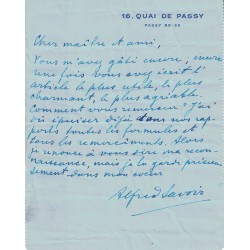 16, QUAI DE PASSY
PASSY 20-22
Cher maître et ami,
Vous m'avez gâté encore, encore
une fois vous avez écrit l'
article le plus utile, le plus
charmant, le plus agréable.
Comment vous remercier ? J'ai
dû épuiser déjà dans nos rap-
ports toutes les formules et
tous les remerciements. Alors
je renonce à vous dire ma recon-
naissance, mais je la garde précieu-
sement dans mon cœur
Alfred Savoir